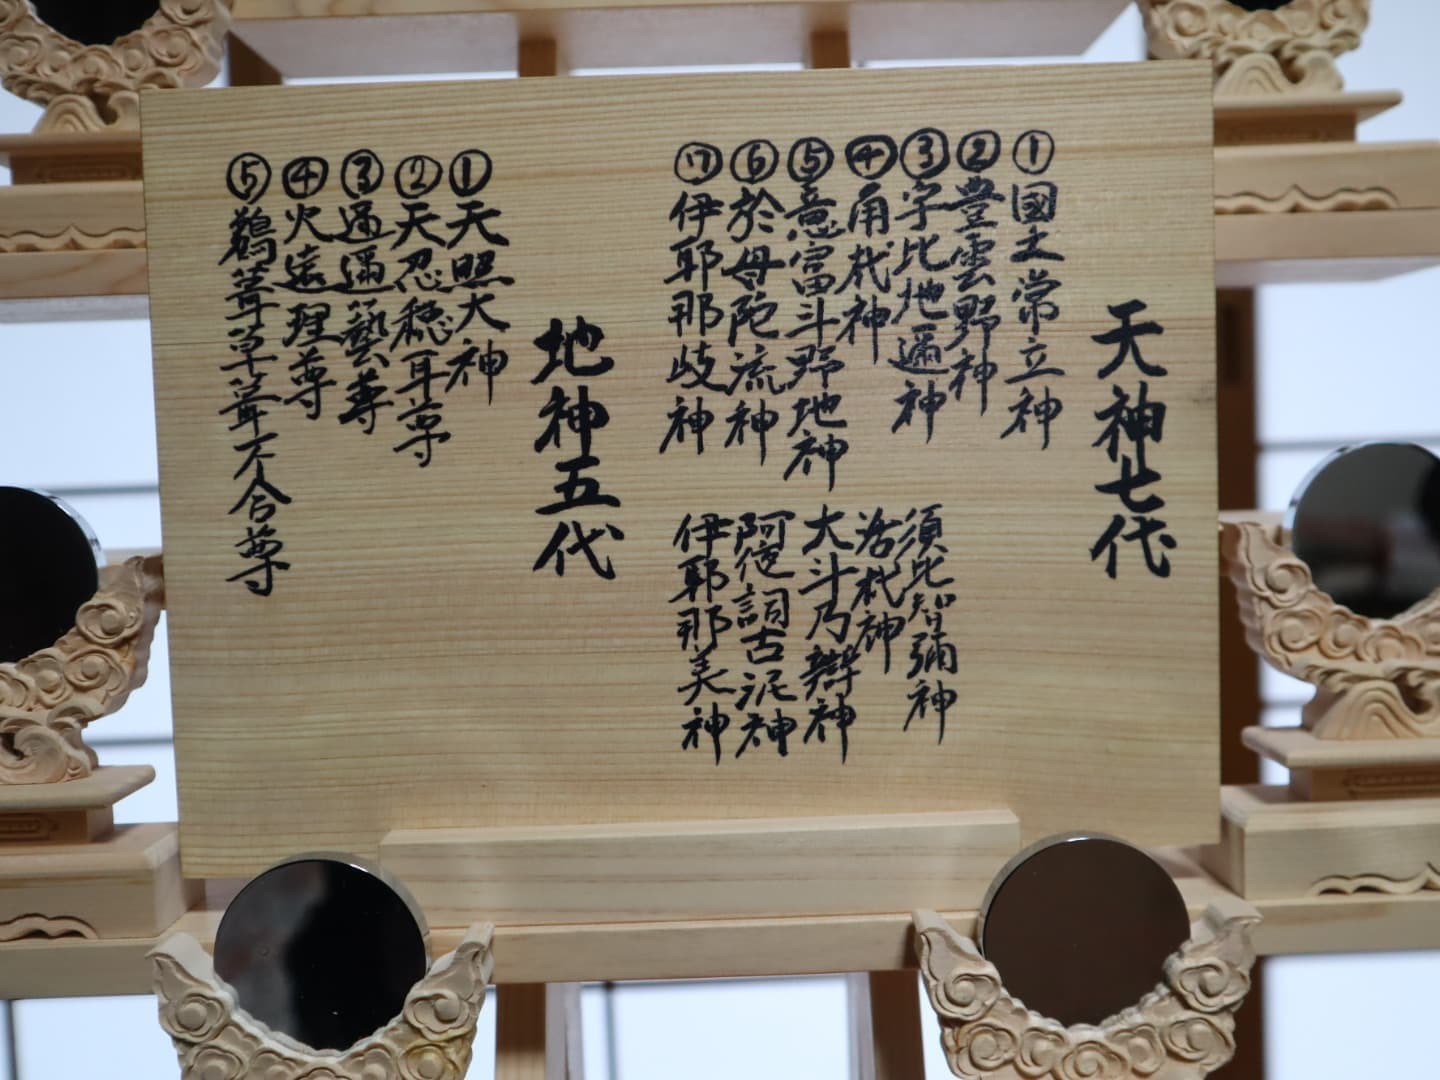 天神七代
①國土常立神
②豊雲野神
③宇比地邇神 須比智邇神
④角杙神 活杙神
⑤意富斗野地神 大斗乃辨神
⑥於母陀流神 阿夜訶古泥神
⑦伊耶那岐神 伊耶那美神
地神五代
①天照大神
②天忍穂耳尊
③邇邇藝尊
④火遠理尊
⑤鵜葺草葺不合尊